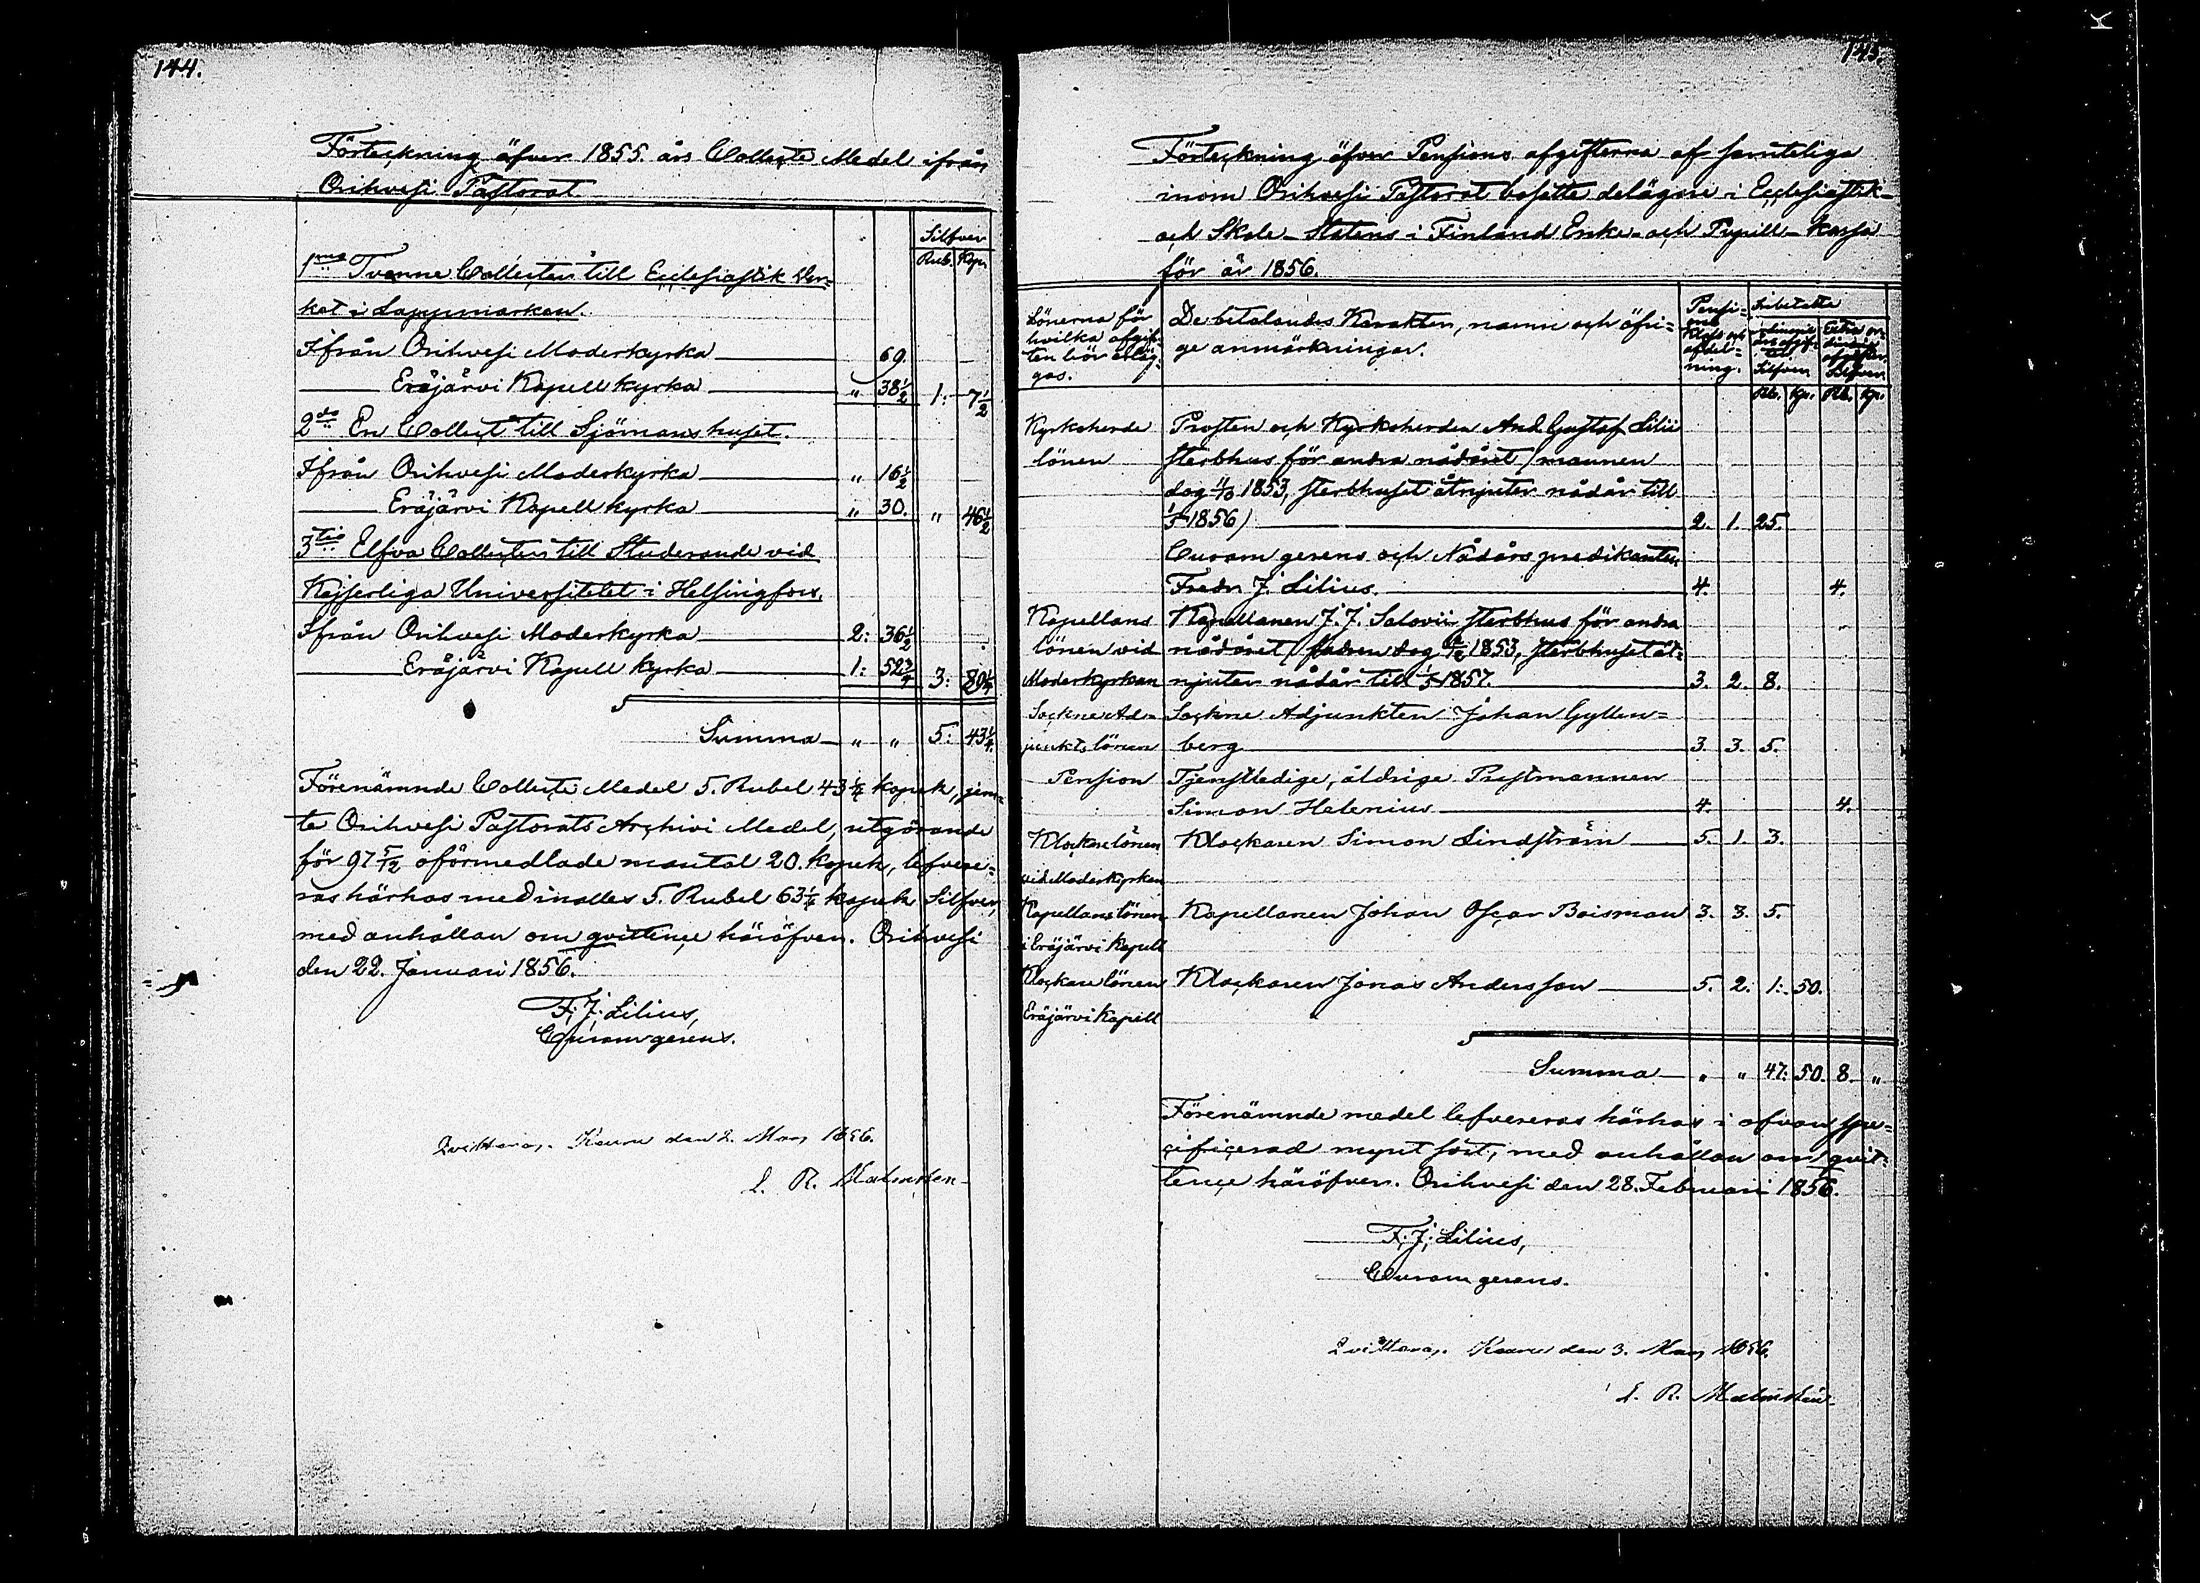 144.
Förteckning öfver 1855 års Collecte Medel ifrån
Orihvesi Pastorat.
Silfver
Rub. Kop.
1mo Tvenne Collecter till Ecclesiastik Ver-
ket i Lappmarken.
Ifrån Orihvesi Moderkyrka 69.
Eräjärvi Kapell kyrka " 38½ 1: 7½
2do En Collect till Sjömanshuset.
Ifrån Orihvesi Moderkyrka " 16½
Eräjärvi Kapell kyrka " 30. " 46½
3tio Elfva Collecter till Studerande vid
Kejserliga Universitetet i Helsingfors.
Ifrån Orihvesi Moderkyrka 2: 36½
Eräjärvi Kapell kyrka 1: 52¾ 3: 89¼
Summa " " 5: 43¼
Förenämnde Collecte Medel 5. Rubel 43¼ kopek, jem-
te Orihvesi Pastorats Archivi Medel, utgörande
för 97 5/12 oförmedlade mantal 20. kopek, lefvere-
ras härhos med inalles 5. Rubel 63¼ kopek Silfver,
med anhållan om qvittence häröfver. Orihvesi
den 22. Januari 1856.
F. J. Lilius,
Curam gerens.
Qvitteras. Keuru den 2. Mars 1856.
L. R. Malmsten
145.
Förteckning öfver Pensions afgifterna af samteliga
inom Orihvesi Pastorat bosatte delägare i Ecclesiastik-
och Skole-Statens i Finland Enke- och Pupill-Kassa
för år 1856.
Lönerna för hvilka afgiften bör erläggas.
De betalandes Karakter, namn och öfri-
ge anmärkningar.
Pensions Klass och afdelning.
ordinarie års afgifter Silfver
Extra ordinarie afgifter Silfver
Rb. Kp. Rb. Kp.
Kyrkoherde Prosten och Kyrkoherden And. Gustaf Lilii
lönen sterbhus för andra nådåret (mannen
dog 1853, sterbhuset åtnjuter nådår till
1/5 1856) 2. 1. 25.
Curam gerens och Nådårs predikanten
Fredr. J. Lilius. 4. 4.
Kapellans Kapellanen J. J. Salovii sterbhus för andra
lönen vid nådåret (fadren dog 1853, sterbhuset åt-
Moderkyrkan njuter nådår till 1/5 1857. 3. 2. 8.
Sockne Ad- Sockne Adjunkten Johan Gyllen-
junkts lönen berg 3. 3. 5.
Pension Tjenstledige, åldrige Prestmannen
Simon Helenius 4. 4.
Klockare lönen Klockaren Simon Lindström 5. 1. 3.
vid Moderkyrkan
Kapellans lönen Kapellanen Johan Oscar Boisman 3. 3. 5.
i Eräjärvi Kapell
Klockare lönen Klockaren Jonas Andersson 5. 2. 1: 50.
Eräjärvi Kapell
Summa " " 47: 50. 8. "
Förenämnde medel lefvereras härhos i ofvan spe-
cificerad mynt sort, med anhållan om qvit-
tence häröfver. Orihvesi den 28. Februari 1856.
F. J. Lilius,
Curam gerens.
Qvitteras. Keuru den 3. Mars 1856.
L. R. Malmstén